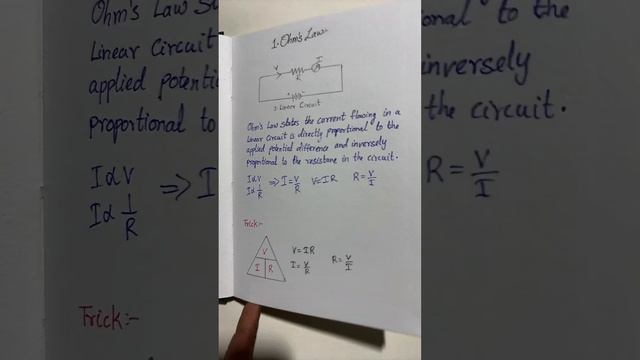 1. Ohm's Law:-
V
I
A
R
+ -
→ Linear Circuit
Ohm's Law states the current flowing in a
Linear circuit is directly proportional to the
applied potential difference and inversely
proportional to the resistane in the circuit.
I∝V
I∝1/R
=> I = V/R V=IR R = V/I
Trick:-
V
I R
V=IR
I = V/R
R = V/I
Ohm's Law Sta
Linear Circuit
applied potenti
proportional to
I∝V
I∝1/R
=> I
Trick:-
tional to the
inversely
the circuit.
R = V/I